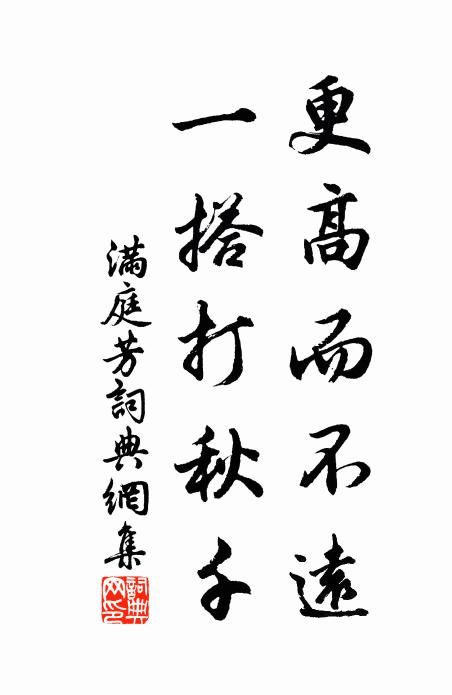 更高而不遠
一搭打秋千
滿庭芳詞典網集
詞典
网印